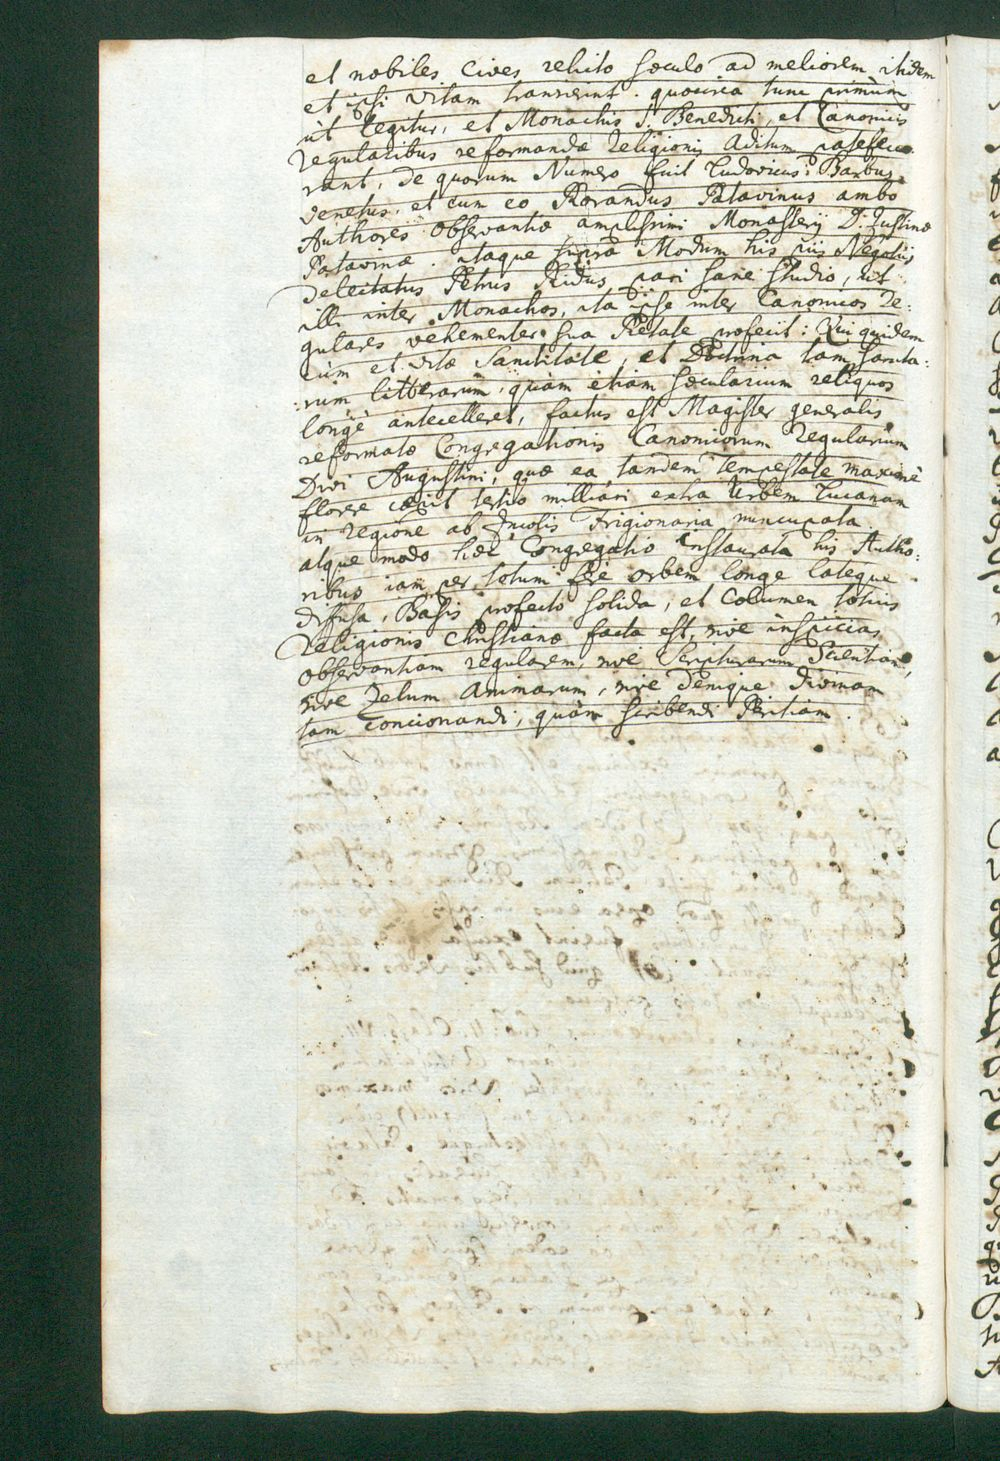 et nobiles Cives relicto sæculo ad meliorem itidem
et ipsi vitam transierunt. quocirca tunc primùm
ùt legitur, et Monachis S. Benedicti, et Canonicis
regularibus reformandæ religionis Aditum patefece-
runt, de quorum Numero fuit Ludovicus Barbus
Venetus, et cum eo Rorandus Patavinus ambo
Authores observantiæ amplissimi Monasterij D. Justinæ
Patavinæ. itaque supra Modum his piis Negotiis
delectatus Petrus Ridus, pari sane studio, ut
illi inter Monachos, ita ipse inter Canonicos Re:
gulares vehementer sua Pietate profecit: Qui quidem
cùm et vitæ Sanctitate, et Doctrina tam sancta:
:rum litterarum, quàm etiam sæcularium reliquos
longè antecelleret, factus est Magister generalis
reformatæ Congregationis Canonicorum Regularium
Divi Augustini, quæ ea tandem Tempestate maximè
florere cæpit tertio milliari extra Urbem Lucanam
in regione ab Incolis Frigionaria nuncupata.
atque modo hæc Congregatio instaurata his Autho:
ribus iam per totum fere orbem longe lateque
diffusa, Basis profecto solida, et Columen totius
religionis Christianæ facta est, sive inspicias
observantiam regularem, sive Scripturarum Scientiam,
sive Zelum Animarum, sive denique divinam
tam concionandi, quàm scribendi Peritiam.